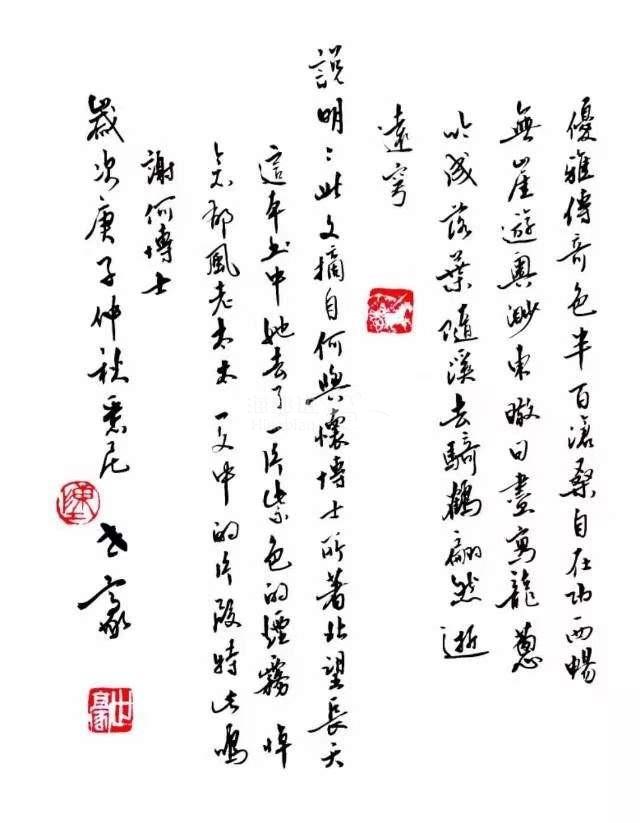 優雅傳奇色半百滄桑自在功西暢
無崖遊奧渺東瞰日晝寫龍蔥
吟成落葉隨溪去騎鶴翩然逝
遠穹
說明：此文摘自何與懷博士所著北望長天
這本書中她去了一片紫色的煙霧 悼
念郁風老太太 一文中的片段特此鳴
謝何博士
歲次庚子仲秋悉尼 世豪
陳
世豪